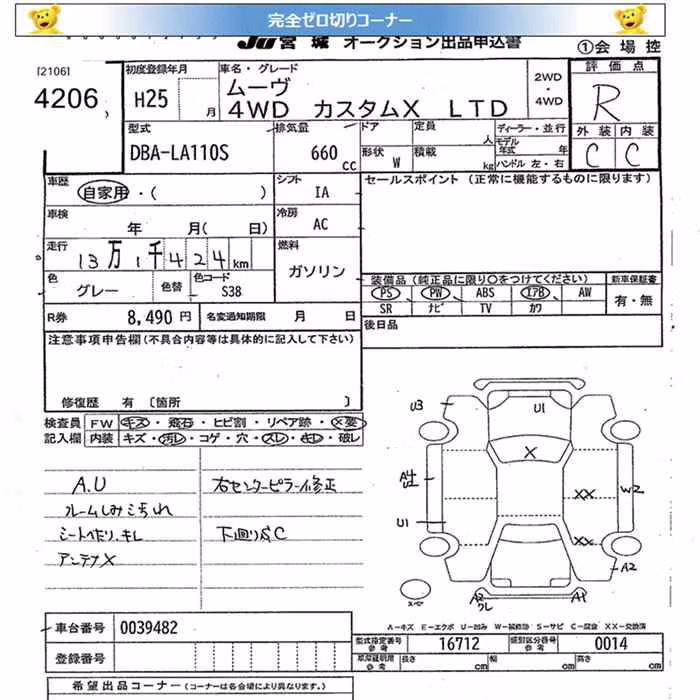 完全ゼロ切りコーナー
JU 宮城 オークション出品申込書
①会場控
[2106]
4206
初度登録年月
H25 月
車名・グレード
ムーヴ
4WD カスタムX LTD
2WD
・
4WD
評価点
R
外装 内装
C C
型式
DBA-LA110S
排気量
660 cc
ドア
定員 人
形状 W
積載 kg
ディーラー・並行
モデル年式 年
ハンドル 左・右
車歴
自家用・( )
シフト
IA
セールスポイント (正常に機能するものに限ります)
車検
年 月( 日)
冷房
AC
走行
13万1千424km
燃料
ガソリン
色
グレー
色替
色コード
S38
装備品(純正品に限り○をつけてください)
PS PW ABS エアB AW
SR ナビ TV カワ
新車保証書
有・無
R券
8,490 円
名変通知期限 月 日
後日品
注意事項申告欄(不具合内容等は具体的に記入して下さい)
修復歴 有 〔箇所 〕
検査員 FW キズ・飛石・ヒビ割・リペア跡・X要
記入欄 内装 キズ・汚レ・コゲ・穴・スレ・キレ・破レ
A.U
ルームしみこちれ
シートへたり.キレ
アンテナX
右センターピラー修正
下廻りSC
U3
U1
X
A4
U2
XX
W2
U1
XX
A2
スペア
A2
クレ
A1
A-キズ E-エクボ U-凹み W-補修跡 S-サビ C-腐食 XX-交換済
車台番号 0039482
登録番号
型式指定番号 参考 16712
類別区分番号 参考 0014
参考 長さ cm 幅 cm 高さ cm
希望出品コーナー(コーナーは各会場により異なります。)